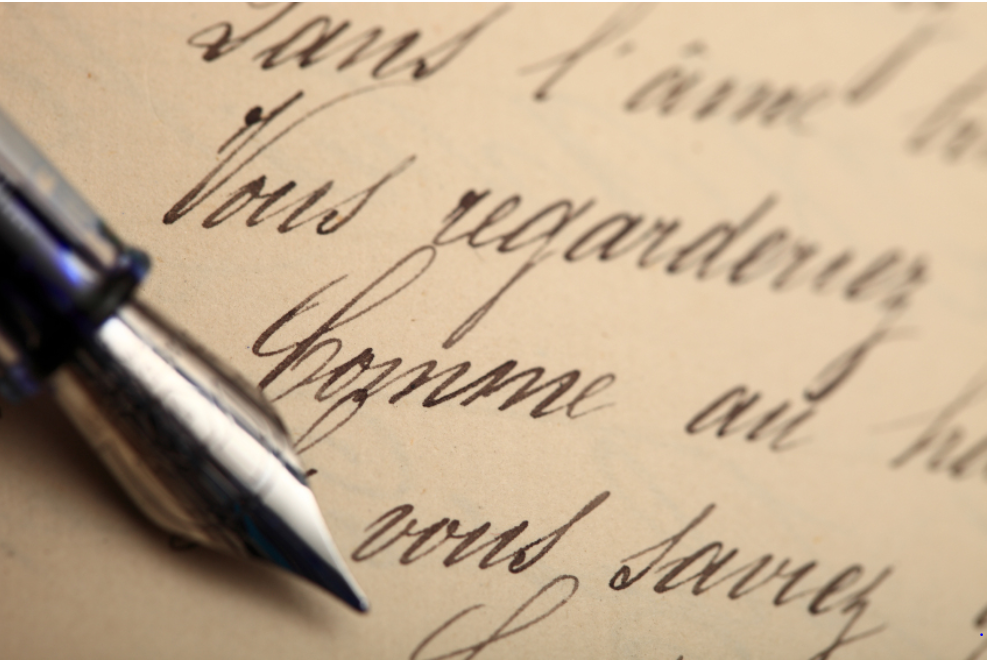 Dans l'âme
Vous regarderiez
Comme au
vous saviez